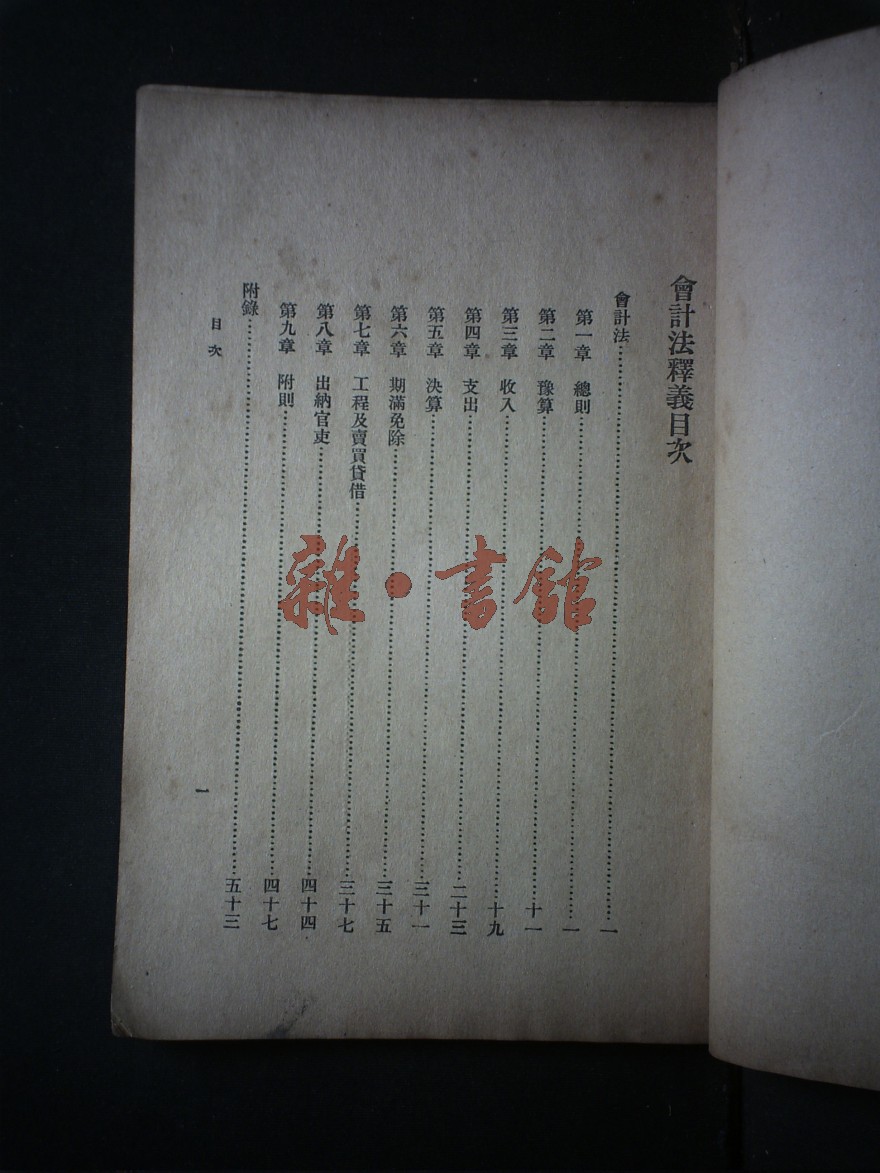 會計法釋義目次
會計法……一
第一章 總則……一
第二章 豫算……十一
第三章 收入……十九
第四章 支出……二十三
第五章 決算……三十一
第六章 期滿免除……三十五
第七章 工程及賣買貸借……三十七
第八章 出納官吏……四十四
第九章 附則……四十七
附錄……五十三
目次
一
雜·書館